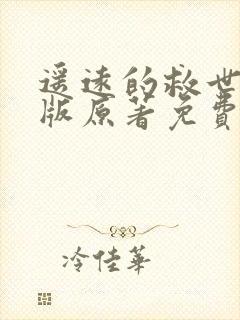 遥远的救世
版原著免费
冷佳华